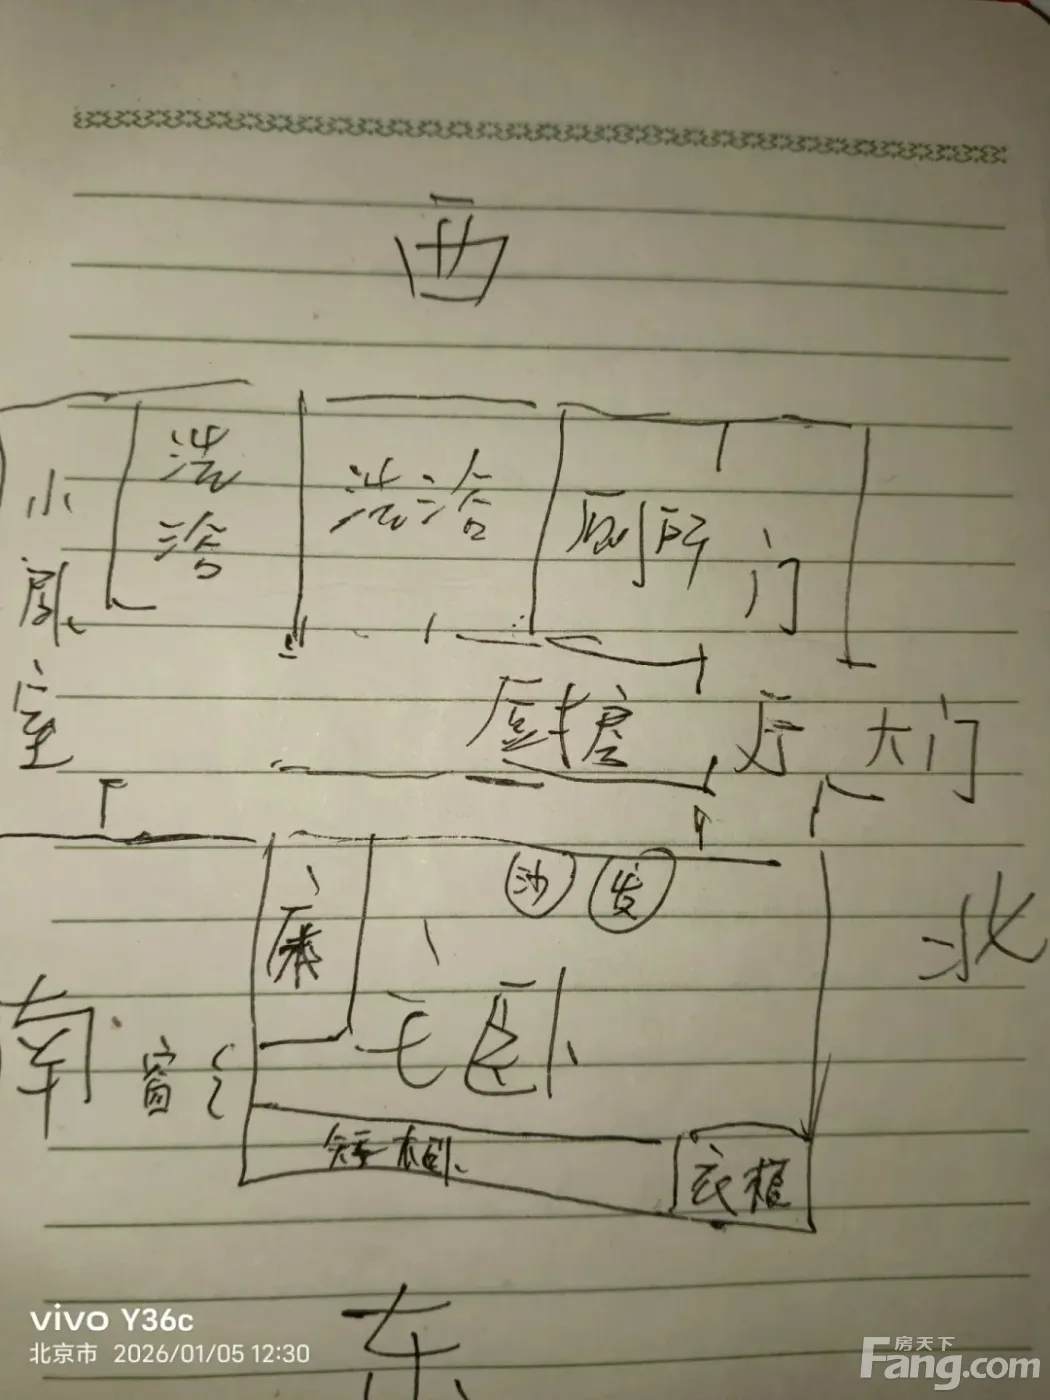 西
小厨室
浩冾
浩冾
厕所
门
厨房
厅
大门
床
沙发
主卧
北
南
窗
矮柜
衣柜
东
vivo Y36c
北京市 2026/01/05 12:30
房天下
Fang.com